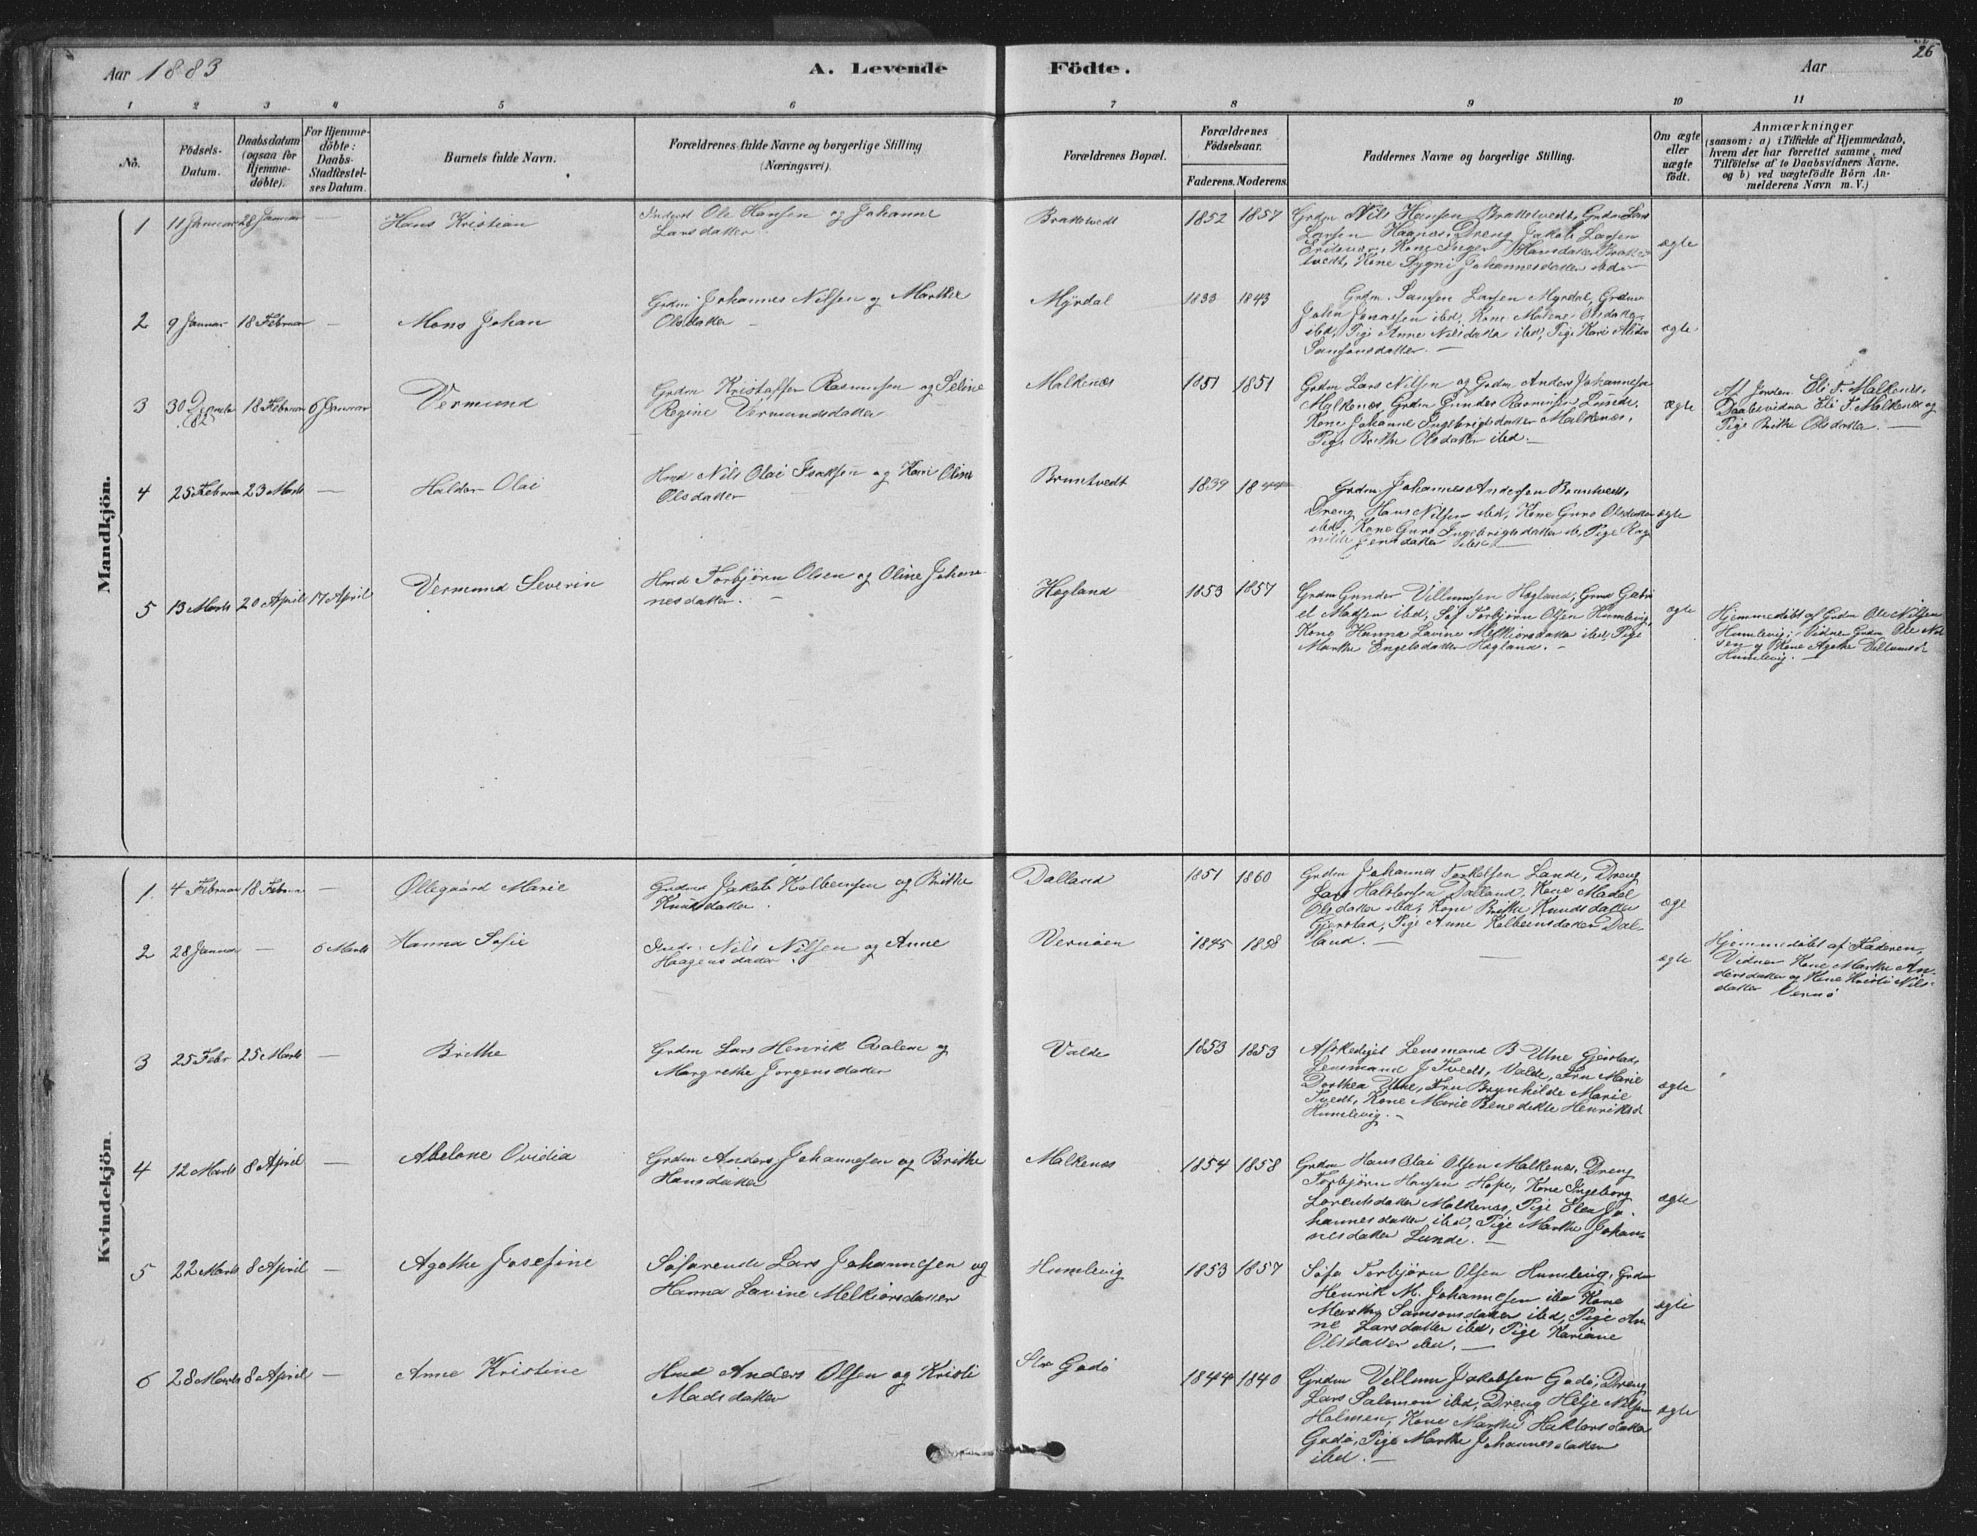 Aar 1883
A. Levende Födte.
Aar
26
1 2 3 4 5 6 7 8 9 10 11
No.
Födsels-Datum.
Daabsdatum (ogsaa for Hjemme-döbte).
For Hjemme-döbte: Daabs-Stadfæstel-ses Datum.
Barnets fulde Navn.
Forældrenes fulde Navne og borgerlige Stilling (Næringsvei).
Forældrenes Bopæl.
Forældrenes Födselsaar.
Faderens. Moderens.
Faddernes Navne og borgerlige Stilling.
Om ægte eller uægte födt.
Anmærkninger
(saasom: a) i Tilfælde af Hjemmedaab,
hvem der har forrettet samme, med
Tilföielse af to Daabsvidners Navne,
og b) ved uægtefödte Börn An-
melderens Navn m. V.)
Mandkjön.
1 11 Januar 28 Januar — Hans Kristian
Ole Hansen og Johanne
Larsdatter
Brattetvedt 1852 1857
Grdm Nils Hansen Brattetvedt, Grdm Lars
Larsen Haaness, Dreng Jakob Larsen
Kone Inger Hansdatter Bratte-
tvedt, Kone Sygni Johannesdatter ibd
ægte
2 9 Januar 18 Februar — Mons Johan
Grdm Johannes Nilsen og Marthe
Olsdatter —
Myrdal 1833 1843
Grdm. Samson Larsen Myrdal, Grdm
John Jonassen ibd, Kone Malene Olsdatter
ibd, Pige Anne Nilsdatter ibd, Pige Kari
Samsonsdatter. —
ægte
3 30 Decmbr 82 18 Februar 6 Januar Vermund
Grdm Kristoffer Rasmusen og Seline
Regine Vermundsdatter
Malkenæs 1851 1851
Grdm Lars Nilsen og Grdm Anders Johannesen
Malkenæs, Grdm Gunder Rasmusen Lunde,
Kone Johanne Ingebrigtsdatter Malkenæs,
Pige Brithe Olsdatter ibd. —
ægte
Af Jorden. Eli T. Malkenes,
Daabsvidner Eli T. Malkenæs og
Pige Brithe Olsdatter. —
4 25 Februar 23 Marts — Haldor Olai
Hmd Nils Olai Isaksen og Kari Oline
Olsdatter
Bruntvedt 1839 1844
Grdm Johannes Andersen Bruntvedt,
Dreng Hans Nilsen ibd, Kone Guro Olsdatter
ibd, Kone Guro Ingebrigtsdatter ib, Pige Rag-
nilde Jensdatter ibd
ægte
5 13 Marts 20 April 17 April Vermund Severin
Hmd Torbjørn Olsen og Oline Johan-
nesdatter. —
Høgland 1853 1857
Grdm Gunder Villumsen Høgland, Grmd Gabri
el Madsen ibd, Søf Torbjørn Olsen Humlevig,
Kone Hanna Lavine Melkiorsdatter ibd, Pige
Marthe Engelsdatter Høgland. —
ægte
Hjemmedøbt af Grdm Ole Nilsen
Humlevig; Vidner Grdm Ole Nil
sen og Kone Agathe Villumsd
Humlevig. —
Kvindekjön.
1 4 Februar 18 Februar — Øllegaard Marie
Grdmd Jakob Kolbeinsen og Brithe
Knudsdatter.
Dalland 1851 1860
Grdm Johannes Torkelsen Lande, Dreng
Lars Halstensen Dalland, Kone Madel
Olsdatter ibd, Kone Brithe Knudsdatter
Gjerstad, Pige Anne Kolbeinsdatter Dal-
land. —
ægte
2 28 Januar — 6 Marts Hanna Sofie
Nils Nilsen og Anne
Haagensdatter.
Vernøen 1845 1858
—
ægte
Hjemmedøbt af Faderen
Vidner Kone Marthe An-
dersdatter og Kone Kristi Nils-
datter Vernø
3 25 Febr 25 Marts — Brithe
Grdm Lars Henrik Qvalem og
Margrethe Jørgensdatter
Valde 1853 1853
Afskediget Lensmand B Utne Gjerstad,
Lensmand J Tvedt, Valde, Fru Marie
Dorthea Utne, Fru Brynhilde Marie
Tvedt, Kone Marie Benedikte Henriksd
Humlevig. —
ægte
4 12 Marts 8 April — Abelone Ovidia
Grdm Anders Johannesen og Brithe
Hansdatter
Malkenæs 1854 1858
Grdm Hans Olai Olsen Malkenæs, Dreng
Torbjørn Hansen Hope, Kone Ingeborg
Lorentsdatter Malkenæs, Pige Elen Jo-
hannesdatter ibd, Pige Marthe Johan-
nesdatter Lunde. —
ægte
5 22 Marts 8 April — Agathe Josefine
Søfarende Lars Johannesen og
Hanna Lavine Melkiorsdatter
Humlevig 1853 1857
Søfa Torbjørn Olsen Humlevig, Grdm
Henrik M. Johannesen ibd Kone
Marthe Samsonsdatter ibd, Pige An-
ne Larsdatter ibd, Pige Kariane
Olsdatter ibd. —
ægte
6 28 Marts 8 April — Anne Kristine
Hmd Anders Olsen og Kristi
Madsdatter
Str Godø 1844 1840
Grdm Villum Jakobsen Godø, Dreng
Lars Salomon ibd, Dreng Helje Nilsen
Holmen, Kone Marthe Haktorsdatter
Godø, Pige Marthe Johannesdatter
ibd. —
ægte